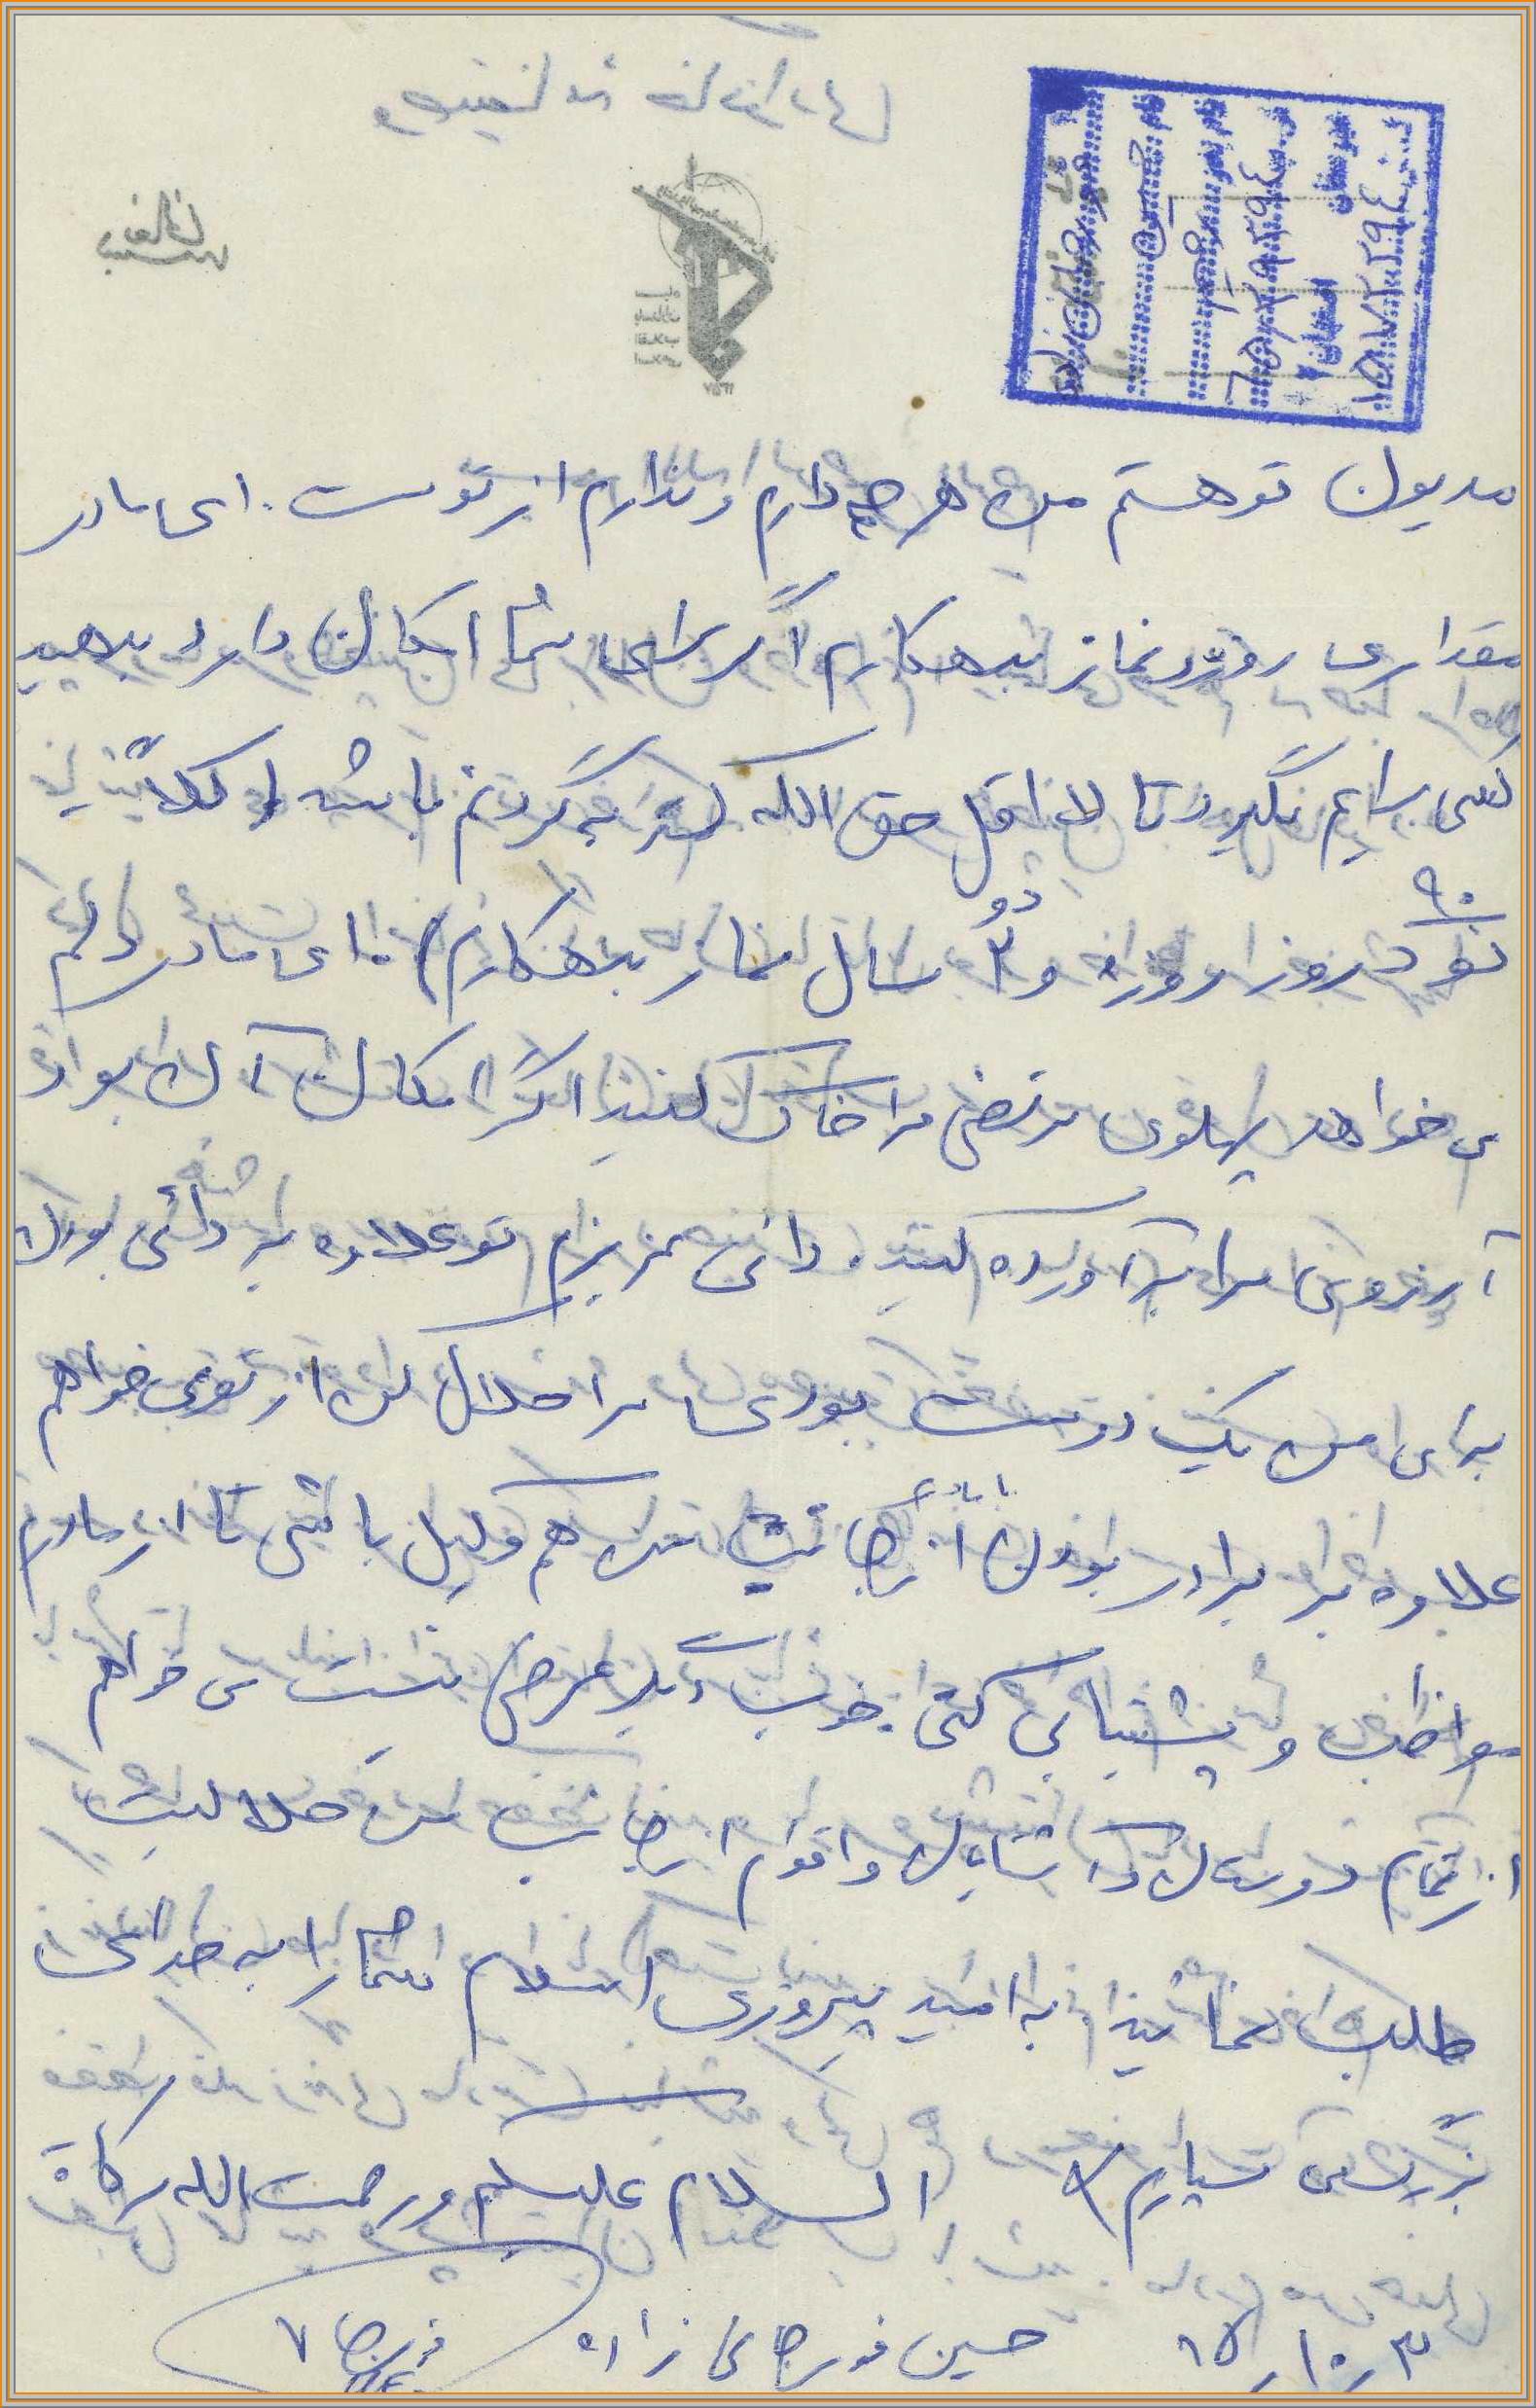 مدیون تو هستم من هرچه دارم و ندارم از توست. ای مادر
مقداری روزه و نماز بدهکارم اگر برای شما امکان دارد بدهید
کسی برایم بگیرد تا لااقل حق الله به گردنم نباشد (کلاً
۹۰
نود روز روزه و ۲ دو سال نماز بدهکارم). ای مادر دلم
می خواهد پهلوی مرتضی مرا خاک کنید اگر امکان آن بود
آرزوی مرا برآورده کنید. دائی عزیزم تو علاوه بر دائی بودن
برای من یک دوست بودی مرا حلال کن از تو می خواهم
علاوه بر برادر بودن از جانب من هم وکیل باشی تا از مادرم
مواظب و پشتیبانی کنی. خوب دیگر عرضی نیست می خواهم
از تمام دوستان و آشنایان و اقوام از جانب من حلالیت
طلب نمائید. به امید پیروزی اسلام شما را به خدای
بزرگ می سپارم
السلام علیکم و رحمت الله برکاته
حسین نوررجائی زاده
۶۵/۱۰/۳
نام
نام پدر
اصفهان